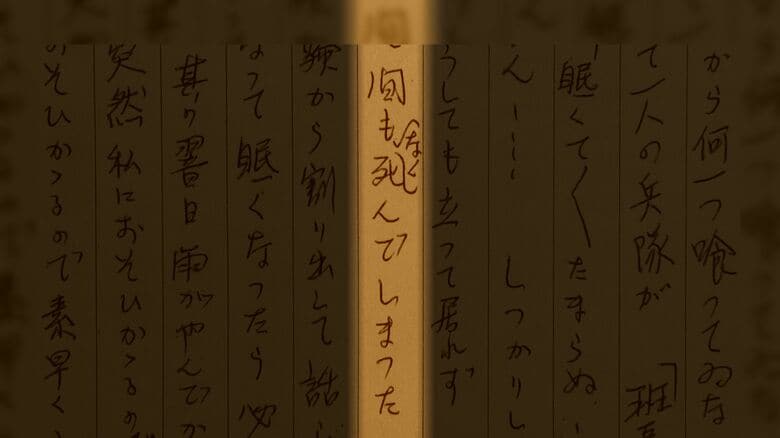 から何一つ喰つてゐな
て一人の兵隊が「班
眠くて〱たまらぬ
ん……しつかりし
うしても立つて居れず
間もなく死んでしまつた
験から割り出して話
なつて眠くなつたら必
其の翌日雨がやんでか
突然私におそひかゝるの
おそひかゝるので素早く